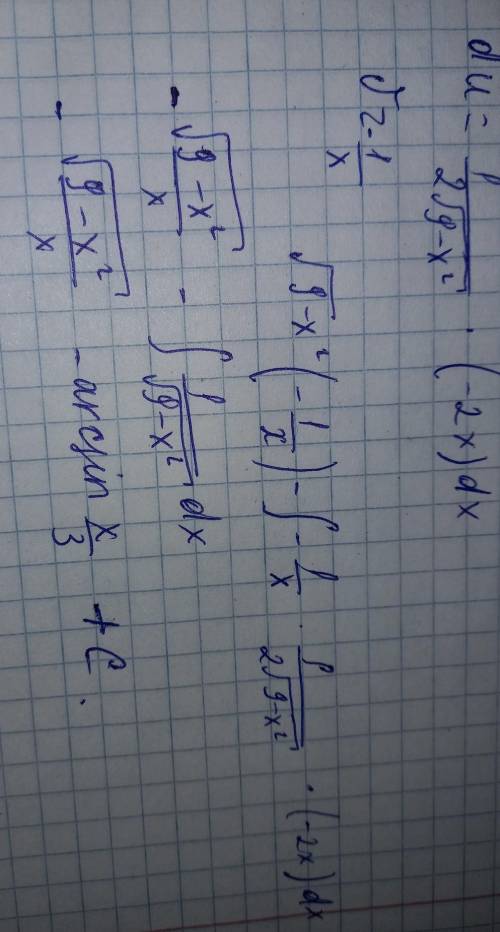 du = 1/(2√(9-x²)) · (-2x)dx
v = -1/x
√(9-x²) (-1/x) - ∫ -1/x · 1/(2√(9-x²)) · (-2x)dx
- √(9-x²)/x - ∫ 1/√(9-x²) dx
- √(9-x²)/x - arcsin x/3 + C.